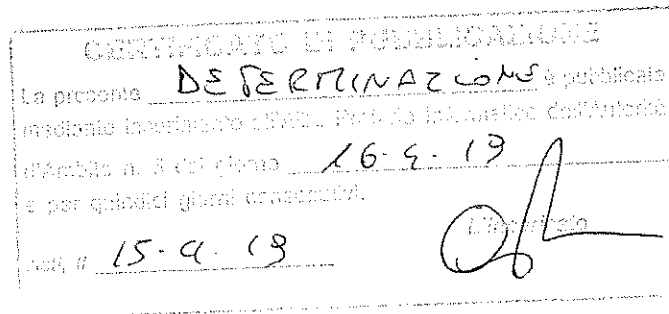 CERTIFICATO DI PUBBLICAZIONE
La presente DETERMINAZIONE è pubblicata
mediante inserimento Informatico dell'Autorità
d'Ambito n. 3 dal giorno 16.4.19
e per quindici giorni consecutivi.
L'Incaricato
lì 15.4.19